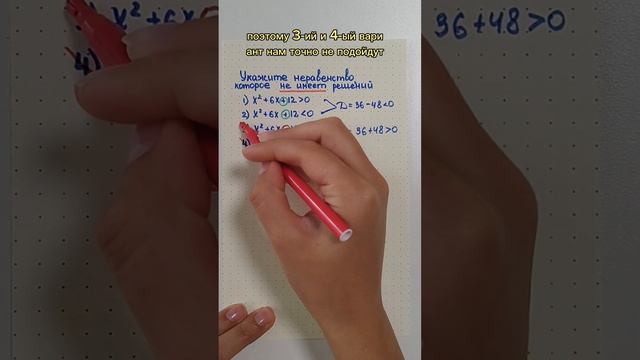 поэтому 3-ий и 4-ый вари
ант нам точно не подойдут
Укажите неравенство
которое не имеет решений
1) x² + 6x + 12 > 0
2) x² + 6x + 12 < 0
D = 36 - 48 < 0
x² + 6x −
= 36 + 48 > 0
4)
x² + 6x
4)
96 + 48 > 0